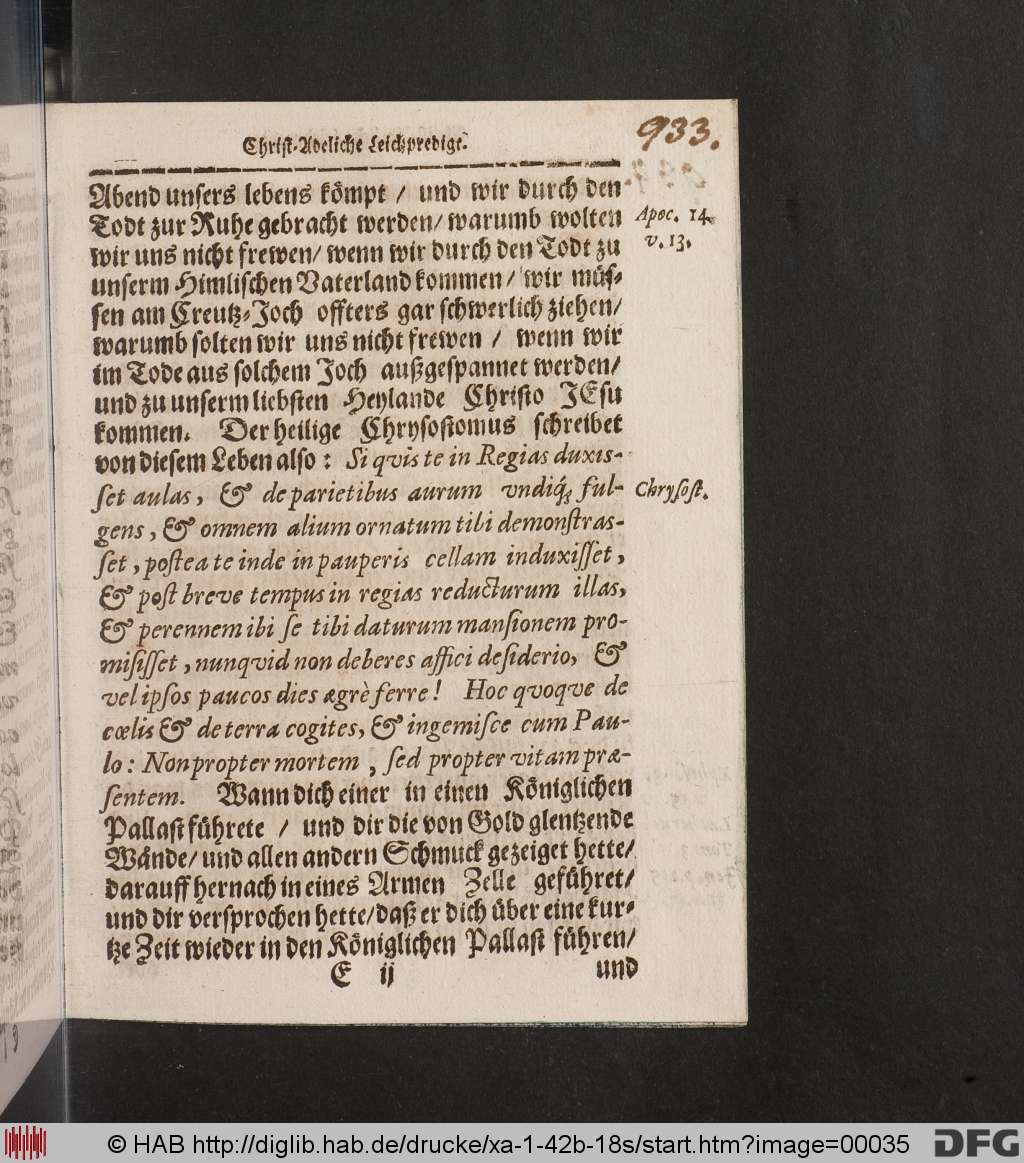 933.
Christ-Adeliche Leichpredigt.
Abend unsers lebens kömpt / und wir durch den
Todt zur Ruhe gebracht werden/ warumb wolten
Apoc. 14.
v. 13.
wir uns nicht frewen/ wenn wir durch den Todt zu
unserm Himlischen Vaterland kommen / wir müs-
sen am Creutz-Joch offters gar schwerlich ziehen/
warumb solten wir uns nicht frewen / wenn wir
im Tode aus solchem Joch außgespannet werden/
und zu unserm liebsten Heylande Christo JEsu
kommen. Der heilige Chrysostomus schreibet
von diesem Leben also: Si qvis te in Regias duxis-
set aulas, & de parietibus aurum vndiq́; ful-
Chrysost.
gens, & omnem alium ornatum tibi demonstras-
set, postea te inde in pauperis cellam induxisset,
& post breve tempus in regias reducturum illas,
& perennem ibi se tibi daturum mansionem pro-
misisset, nunqvid non deberes affici desiderio, &
vel ipsos paucos dies ægrè ferre! Hoc qvoqve de
cœlis & de terra cogites, & ingemisce cum Pau-
lo: Non propter mortem, sed propter vitam præ-
sentem. Wann dich einer in einen Königlichen
Pallast führete / und dir die von Gold glentzende
Wände/ und allen andern Schmuck gezeiget hette/
darauff hernach in eines Armen Zelle geführet/
und dir versprochen hette/ daß er dich über eine kur-
tze Zeit wieder in den Königlichen Pallast führen/
E ij
und
© HAB http://diglib.hab.de/drucke/xa-1-42b-18s/start.htm?image=00035
DFG